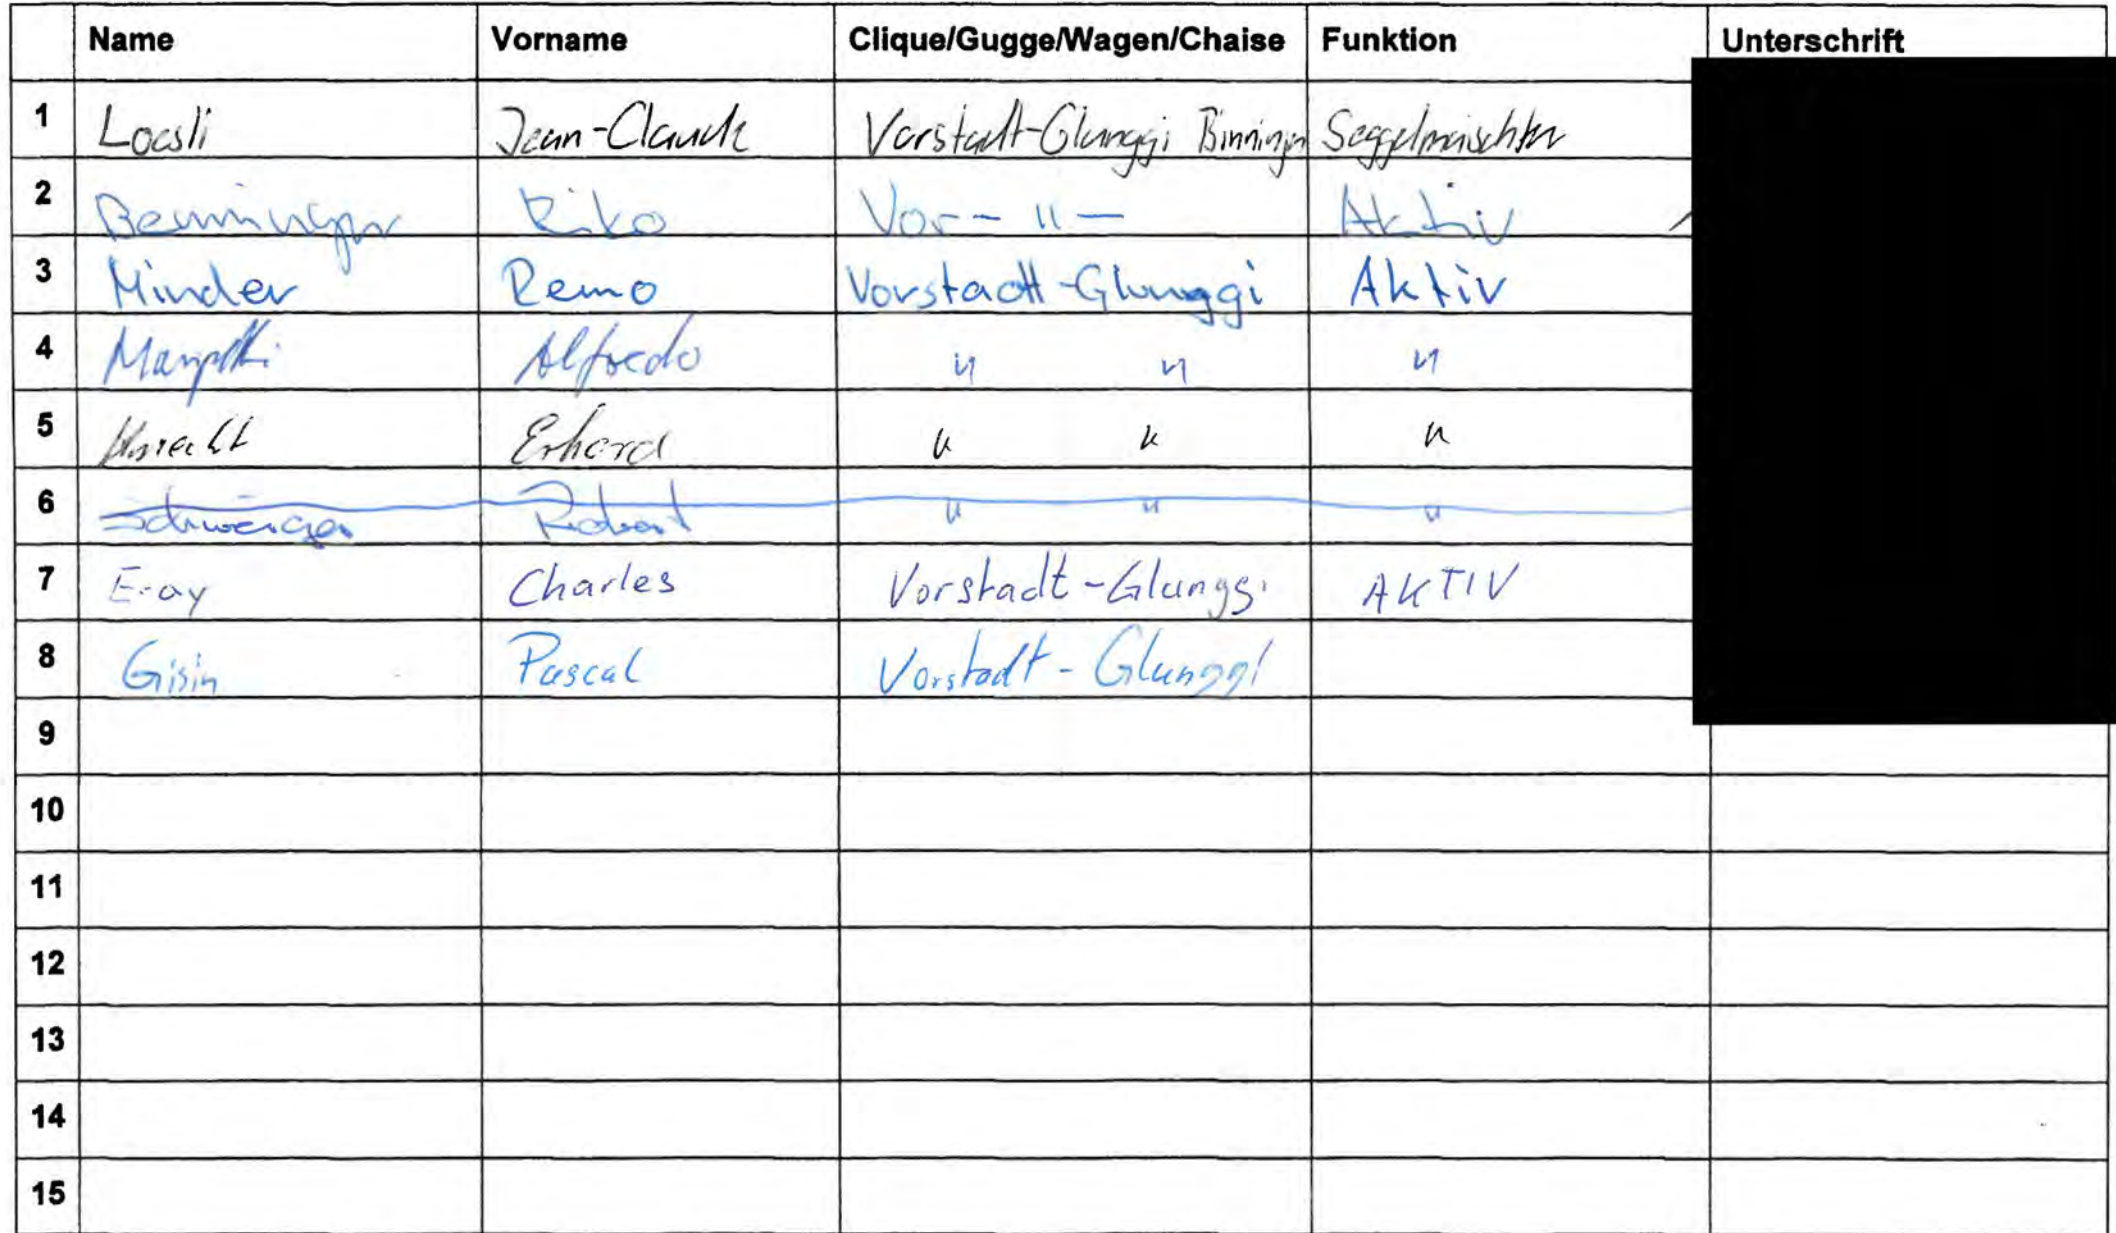 Name Vorname Clique/Gugge/Wagen/Chaise Funktion Unterschrift
1 Loosli Jean-Claude Vorstadt-Glunggi Binningen Seggelmaischter
2 Riko Vor- " - Aktiv
3 Minder Remo Vorstadt-Glunggi Aktiv
4 Alfredo " " "
5 Erhard " " "
6 Robert " " "
7 Charles Vorstadt-Glunggi AKTIV
8 Gisin Pascal Vorstadt-Glunggi
9
10
11
12
13
14
15